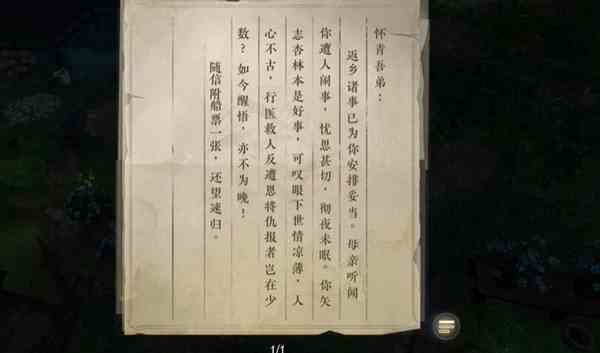 怀青吾弟：
返乡诸事已为你安排妥当。母亲听闻
你遭人闹事，忧思甚切，彻夜未眠。你矢
志杏林本是好事，可叹眼下世情凉薄，人
心不古，行医救人反遭恩将仇报者岂在少
数？如今醒悟，亦不为晚！
随信附船票一张，还望速归。
1/1